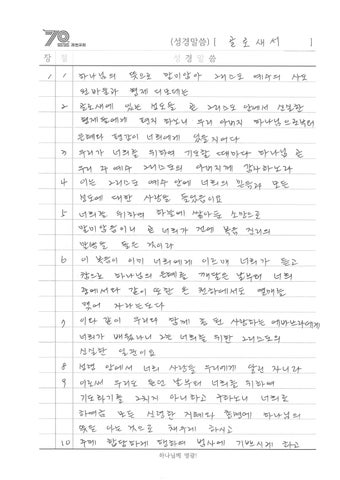 70
(성경말씀) [ 골로새서 ]
장 절 성 경 말 씀
1 1 하나님의 뜻으로 말미암아 그리스도 예수의 사도
된 바울과 형제 디모데는
2 골로새에 있는 성도들 곧 그리스도 안에서 신실한
형제들에게 편지하노니 우리 아버지 하나님으로부터
은혜와 평강이 너희에게 있을지어다
3 우리가 너희를 위하여 기도할 때마다 하나님 곧
우리 주 예수 그리스도의 아버지께 감사하노라
4 이는 그리스도 예수 안에 너희의 믿음과 모든
성도에 대한 사랑을 들었음이요
5 너희를 위하여 하늘에 쌓아둔 소망으로
말미암음이니 곧 너희가 전에 복음 진리의
말씀을 들은 것이라
6 이 복음이 이미 너희에게 이르매 너희가 듣고
참으로 하나님의 은혜를 깨달은 날부터 너희
중에서와 같이 또한 온 천하에서도 열매를
맺어 자라는도다
7 이와 같이 우리와 함께 종 된 사랑하는 에바브라에게
너희가 배웠나니 그는 너희를 위한 그리스도의
신실한 일꾼이요
8 성령 안에서 너희 사랑을 우리에게 알린 자니라
9 이로써 우리도 듣던 날부터 너희를 위하여
기도하기를 그치지 아니하고 구하노니 너희로
하여금 모든 신령한 지혜와 총명에 하나님의
뜻을 아는 것으로 채우게 하시고
10 주께 합당하게 행하여 범사에 기쁘시게 하고
하나님께 영광!